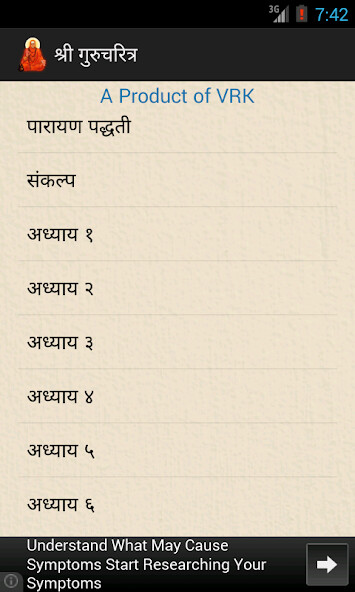 3G 7:42
श्री गुरुचरित्र
A Product of VRK
पारायण पद्धती
संकल्प
अध्याय १
अध्याय २
अध्याय ३
अध्याय ४
अध्याय ५
अध्याय ६
Understand What May Cause
Symptoms Start Researching Your
Symptoms